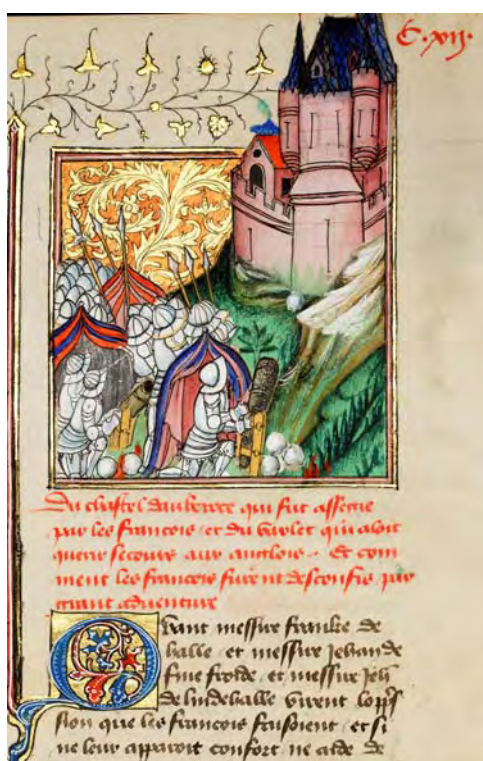 C. xvij.
Du chastel dauberoce qui fut assegie
par les francois et du varlet qui aloit
querir secours aux anglois. Et com
ment les francois furent desconfis par
grant aduenture
Quant messire franke de
halle et messire jehan de
fine froide et messire jeh
de lindehalle virent lopp̃s
sion que les francois faisoient et si
ne leur apparoit confort ne aide de